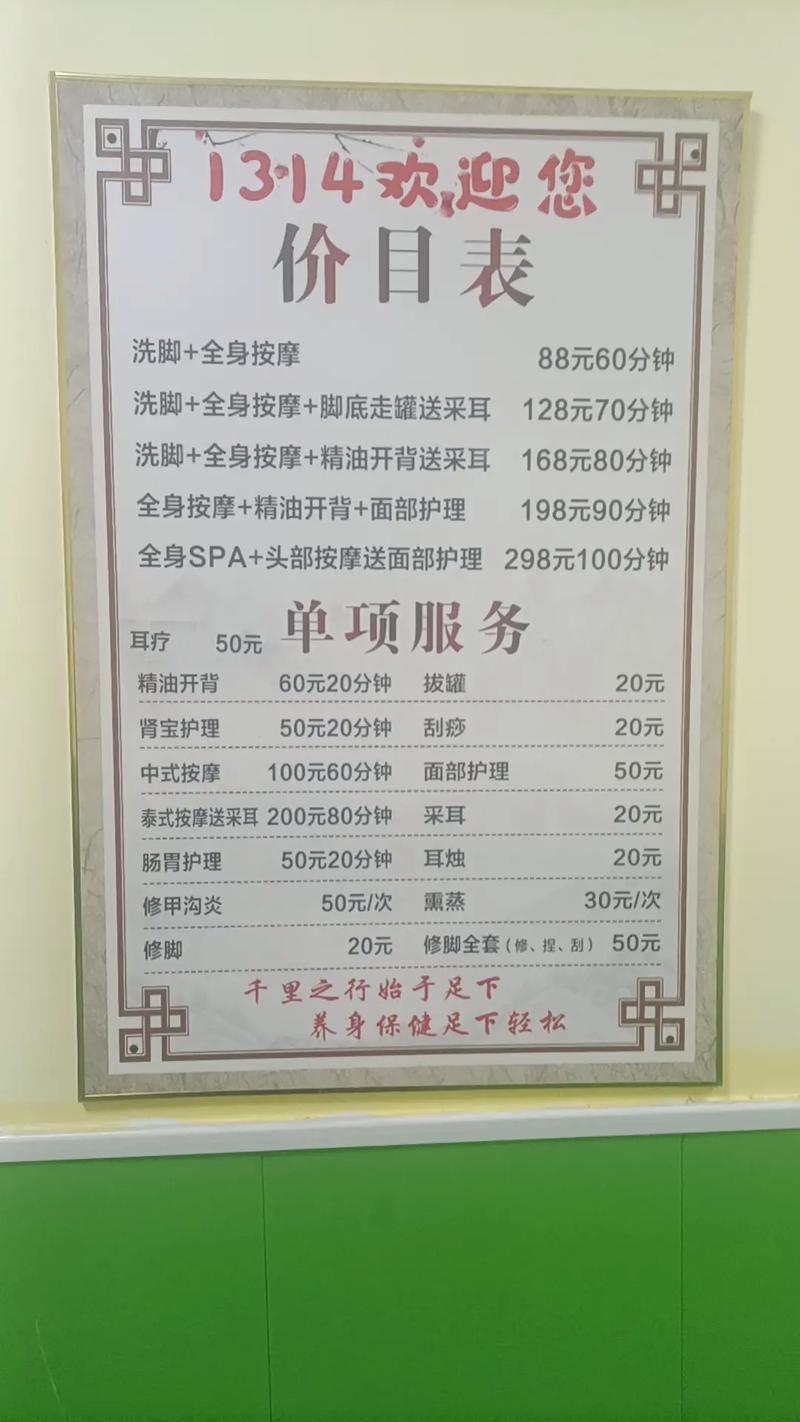 1314欢迎您
价目表
洗脚+全身按摩 88元60分钟
洗脚+全身按摩+脚底走罐送采耳 128元70分钟
洗脚+全身按摩+精油开背送采耳 168元80分钟
全身按摩+精油开背+面部护理 198元90分钟
全身SPA+头部按摩送面部护理 298元100分钟
耳疗 50元 单项服务
精油开背 60元20分钟 拔罐 20元
肾宝护理 50元20分钟 刮痧 20元
中式按摩 100元60分钟 面部护理 50元
泰式按摩送采耳 200元80分钟 采耳 20元
肠胃护理 50元20分钟 耳烛 20元
修甲沟炎 50元/次 熏蒸 30元/次
修脚 20元 修脚全套(修、捏、刮) 50元
千里之行始于足下
养身保健足下轻松